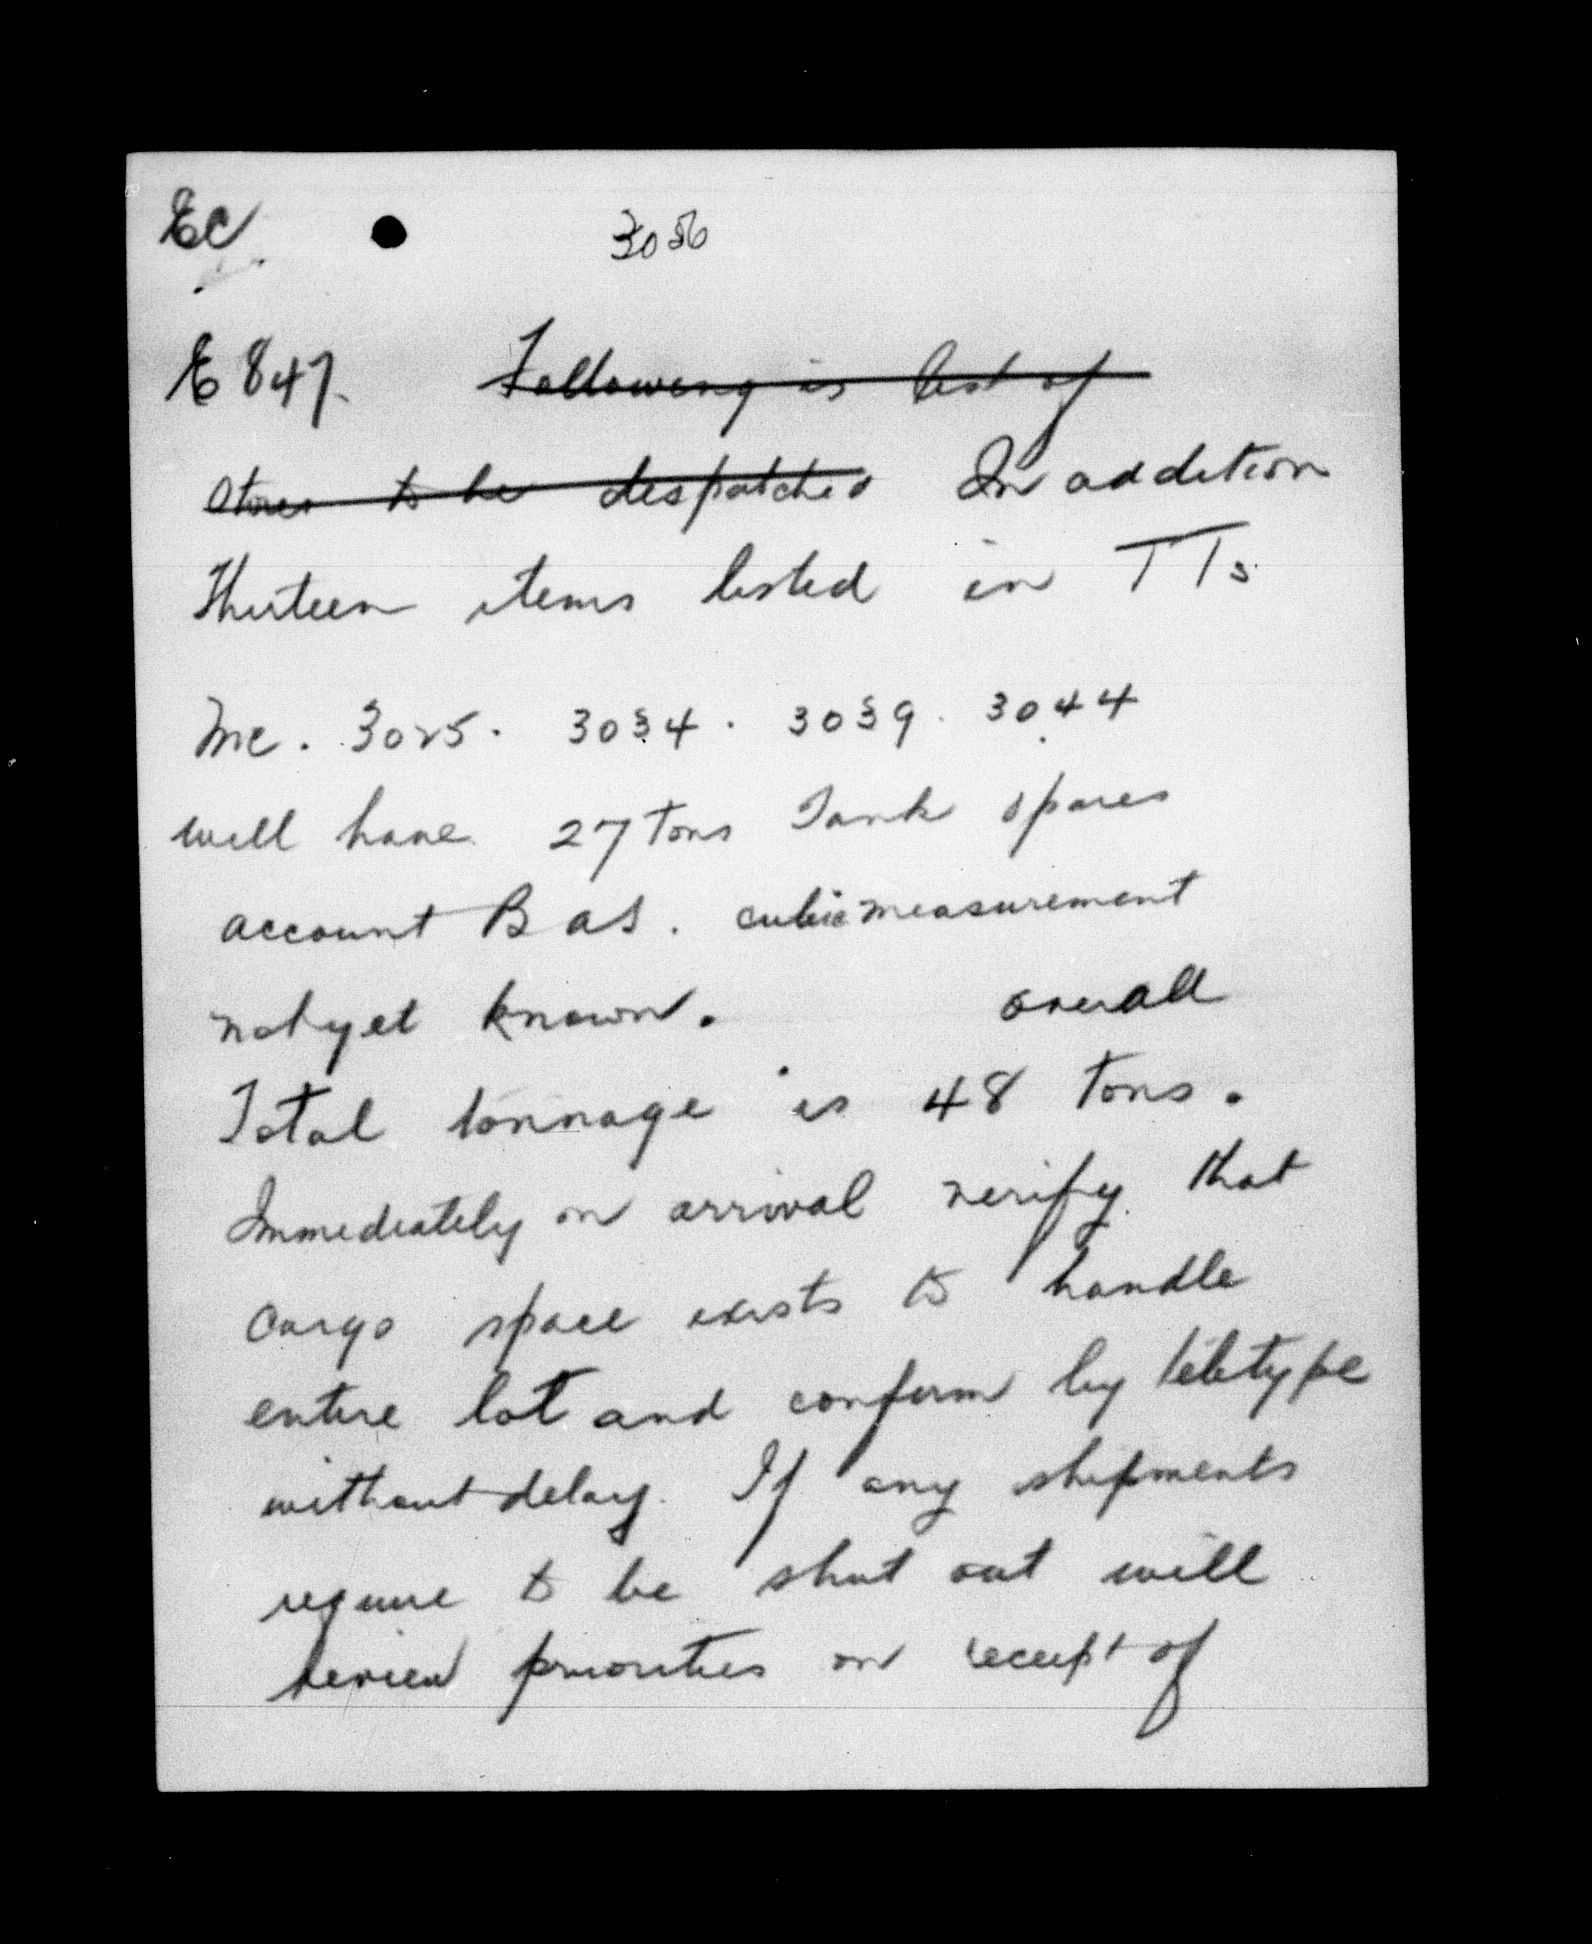 EC 3056
E 847. Following is list of
stores to be despatched In addition
Thirteen items listed in TTs
Mc. 3025. 3034. 3039. 3044
will have 27 tons Tank spares
account B as. cubic measurement
not yet known. overall
Total tonnage is 48 tons.
Immediately on arrival verify that
cargo space exists to handle
entire lot and confirm by teletype
without delay. If any shipments
require to be shut out will
review priorities on receipt of